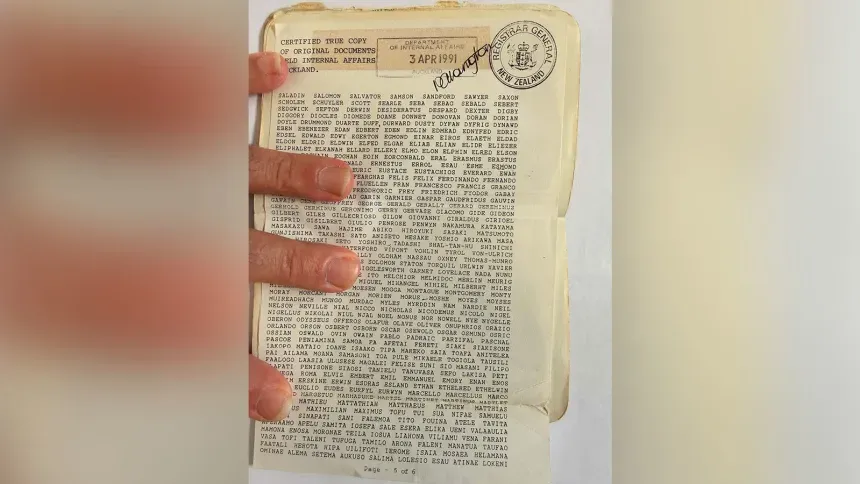 CERTIFIED TRUE COPY
OF ORIGINAL DOCUMENTS
HELD INTERNAL AFFAIRS
AUCKLAND.
DEPARTMENT
OF INTERNAL AFFAIRS
3 APR 1991
AUCKLAND
REGISTRAR GENERAL
NEW ZEALAND
SALADIN SALOMON SALVATOR SAMSON SANDFORD SAWYER SAXON
SCHOLEM SCHUYLER SCOTT SEARLE SEBA SEBAG SEBALD SEBERT
SEDGWICK SEFTON DERWIN DESIDERATUS DESPARD DEXTER DIGBY
DIGGORY DIOCLES DIOMEDE DOANE DONNET DONOVAN DORAN DORIAN
DOYLE DRUMMOND DUARTE DUFF DURWARD DUSTY DYFAN DYFRIG DYNAWD
EBEN EBENEZER EDAN EDBERT EDEN EDLIN EDMKAD EDNYFED EDRIC
EDSEL EDWALD EDWY EGERTON EGMOND EINAR EIROS ELAETH ELDAD
ELDON ELDRID ELDWIN ELFED ELGAR ELIAB ELIAN ELIDR ELIEZER
ELIPHALET ELKANAH ELLARD ELLERY ELMO ELON ELPHIN ELRED ELSON
EOGHAN EOIN EORCONBALD ERAL ERASMUS ERASTUS
ERNESTUS ERROL ESAU ESME EGMOND
EURIC EUSTACE EUSTACHIOS EVERARD EWAN
FEARGHAS FELIS FELIX FERDINANDO FERNANDO
FLUELLEN FRAN FRANCESCO FRANCIS GRANCO
FREODHORIC FREY FRIEDRICH FYODOR GABAY
GARIN GARNIER GASPAR GAUDFRIDUS GAUVIN
GAWAIN GENE GEOFFREY GEORGE GERALD GERALLT GERARD GEREMINUS
GERMOLD GERMINUS GERONIMO GERRY GERVASE GIACOMO GIDE GIDEON
GILBERT GILES GILLECRIOSD GILOW GIOVANNI GIRALDUS GIRIOEL
GISFRID GISILBERT GIULIO PENROSE PENWYN NAKAMURA KATAYAMA
MASAKAZU SAWA HAJIME ABIKO HIROYUKI SASAKI MATSUMOTO
GUNJISHIMA TAKASHI SATO ANISETO MESAKE YOSHIO ARIKAWA MASA
HIROSAKI SETO YOSHIRO TADASHI SHAL-TAN-HU SHINICHI
WATERFORD VIPONT VOHLIN TYROL VON-ULRICH
OLDHAM NASSAU OXNEY THOMAS-MUNRO
SOLOMON STATON TORQUIL URLWIN XAVIER
WIGGLESWORTH GARNEY LOVELACE NADA NUNU
ITO MELCHIOR MELMIDOC MERLIN MEURIG
MIGUEL MIHANGEL MIHIEL MILBERST MILES
MOESEN MOGGA MONTAGUE MONTGOMERY MONTY
MORAY MORCANT MORGAN MORIEN MORUS MOSHE MOYES MOYSES
MUIREADHACH MUNGO MURDAC MYLES MYRDDIN NAM NARDIE NEIL
NELSON NEVILLE NIAL NICCO NICHOLAS NICODEMUS NICOLO NIGEL
NIGELLUS NIKOLAI NIUL NJAL NOEL NONUS NOR NOWELL NYE NYGELLE
OBERON ODYSSEUS OFFEROS OLAFUR OLAVE OLIVER ONUPHRIOS ORAZIO
ORLANDO ORSON OSBERT OSBORN OSCAR OSEWOLD OSGAR OSMUND OSRIC
OSSIAN OSWALD OVIN OWAIN PABLO PADRAIC PARZIFAL PASCHAL
PASCOE PENIAMINA SAMOA FA AFETAI FERETI SIAKI SIAKISONE
IAKOPO MATAIO IOANE ISAAKO TIPA MAREKO SAIA TOAFA ANITELEA
PAI AILAMA MOANA SAMASONI TOA PULE MIKAELE TOGIOLA TAUSILI
FAALOGO LAASIA ULUSESE MAGALEI FELISE SUNI SIO MASANI FILIPO
PENISONE SIAOSI TANIELU TANUVASA SEFO LAKISA PETI
ROMA ELVIS EMBERT EMIL EMMANUEL EMORY ENAN ENOS
ERSKINE ERWIN ESDRAS ESLAND ETHAN ETHELRED ETHELWIN
EUCLID EUDES EURFYL EURWYN MARCELLO MARCELLUS MARCO
MATHIEU MATTATHIAN MATTHAEUS MATTHEW MATTHIAS
MAXIMILIAN MAXIMUS TOFU TUI SUA NIFAE SAMUELU
SINAPATI SANI FALEMOA TITO FOUINA ATELE TAVITA
APELU SAMITA IOSEFA SALE ESERA ELIKA UENI VALAAULIA
MAMONA ENOSA MORONAE TEILA IOSUA LIAHONA VILIAMU VENA FARANI
VASA TOPI TALENI TUFUGA TAMILO ARONA FALENI MANATUA TAUFAO
FAATALI HEHOTA NIPA UILIFOTI IEROME ISAIA MOSAEA HELAMANA
OMINAE ALEMA SETEMA AUKUSO SALIMA LOLESIO ESAU ATINAE LOKENI
Page - 5 of 6